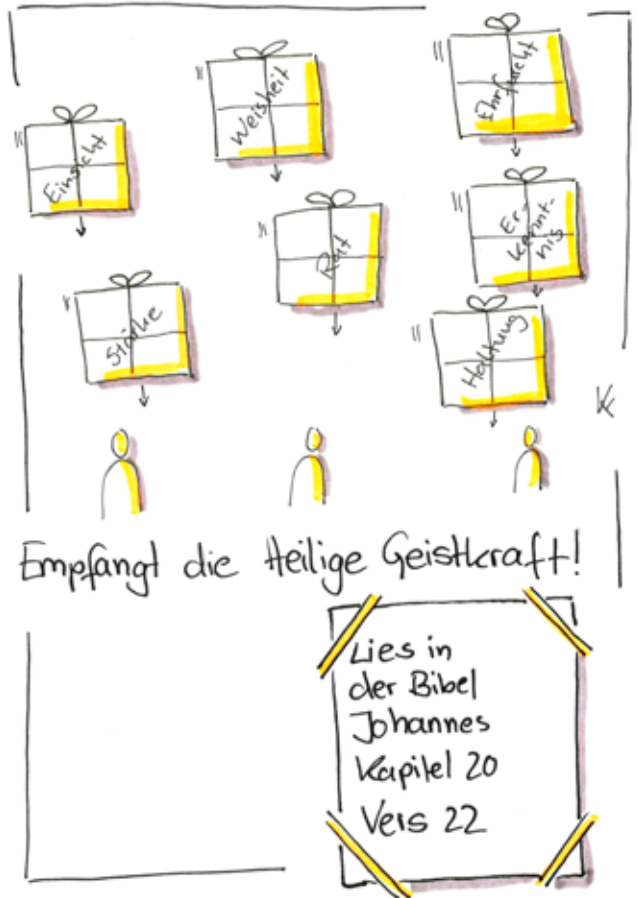 Weisheit
Ehrfurcht
Einsicht
Rat
Er-
kennt-
nis
Stärke
Haltung
Empfangt die Heilige Geistkraft!
Lies in
der Bibel
Johannes
Kapitel 20
Vers 22